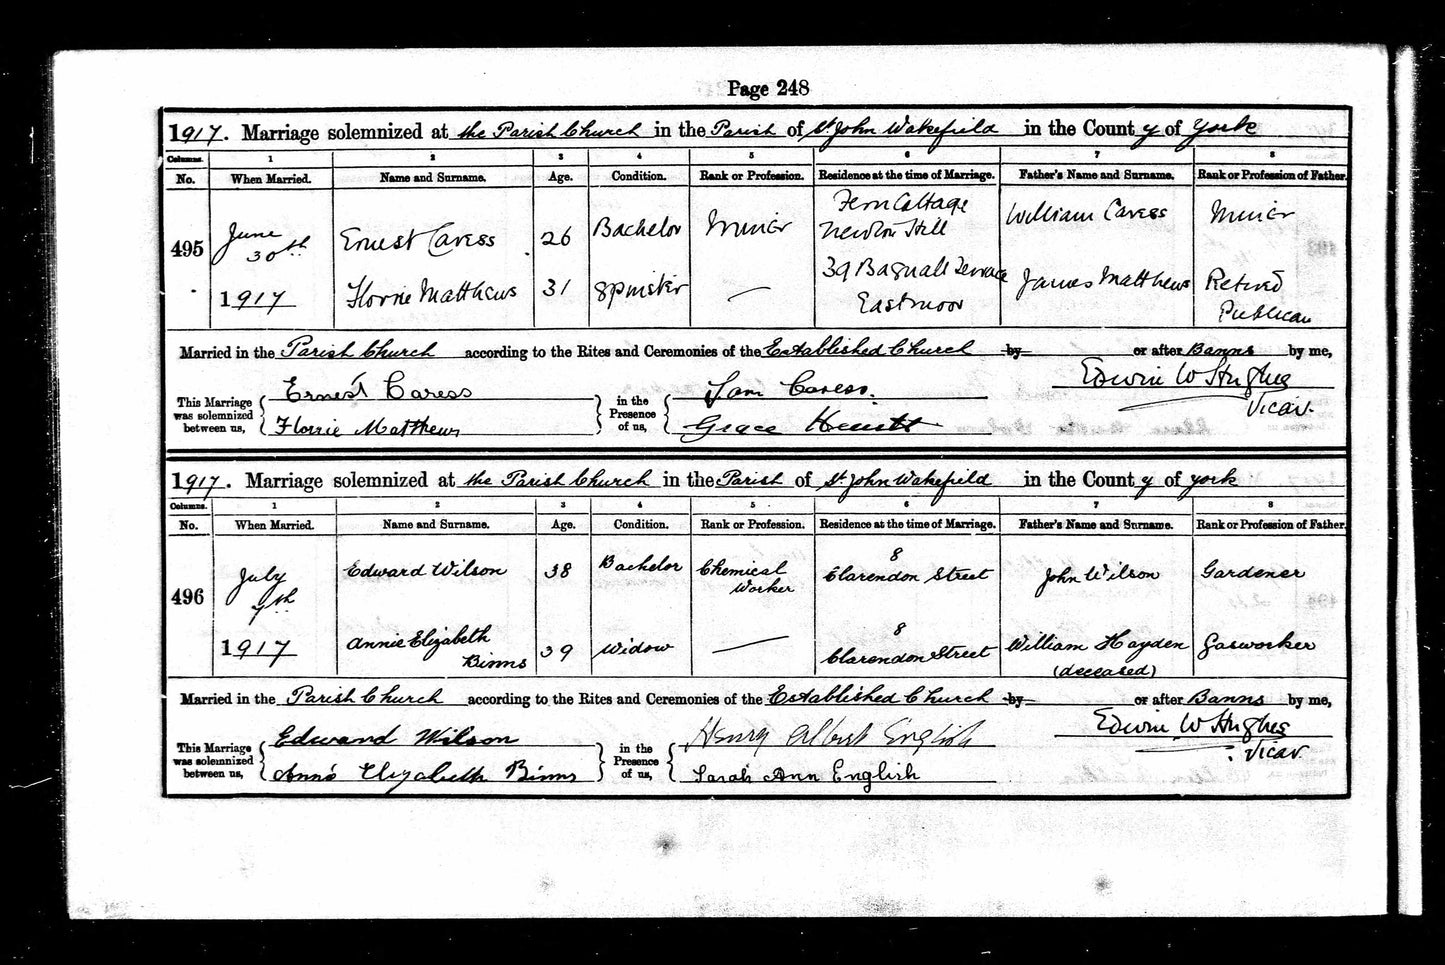 Page 248
1917. Marriage solemnized at the Parish Church in the Parish of St. John Wakefield in the County of York
Columns. 1 2 3 4 5 6 7 8
No. When Married. Name and Surname. Age. Condition. Rank or Profession. Residence at the time of Marriage. Father's Name and Surname. Rank or Profession of Father.
495 June 30th 1917 Ernest Caress 26 Bachelor Miner Fern Cottage Newton Hill William Caress Miner
Florrie Matthews 31 Spinster — 39 Bagnall Terrace Eastmoor James Matthews Retired Publican
Married in the Parish Church according to the Rites and Ceremonies of the Established Church by or after Banns by me,
This Marriage was solemnized between us, Ernest Caress in the Presence of us, Sam Caress. Edwin W Hughes
Florrie Matthews Grace Hewitt Vicar.
1917. Marriage solemnized at the Parish Church in the Parish of St John Wakefield in the County of York
Columns. 1 2 3 4 5 6 7 8
No. When Married. Name and Surname. Age. Condition. Rank or Profession. Residence at the time of Marriage. Father's Name and Surname. Rank or Profession of Father.
496 July 7th 1917 Edward Wilson 38 Bachelor Chemical Worker 8 Clarendon Street John Wilson Gardener
Annie Elizabeth Binns 39 Widow — 8 Clarendon Street William Hayden (deceased) Gasworker
Married in the Parish Church according to the Rites and Ceremonies of the Established Church by or after Banns by me,
This Marriage was solemnized between us, Edward Wilson in the Presence of us, Henry Albert English Edwin W Hughes
Annie Elizabeth Binns Sarah Ann English Vicar.